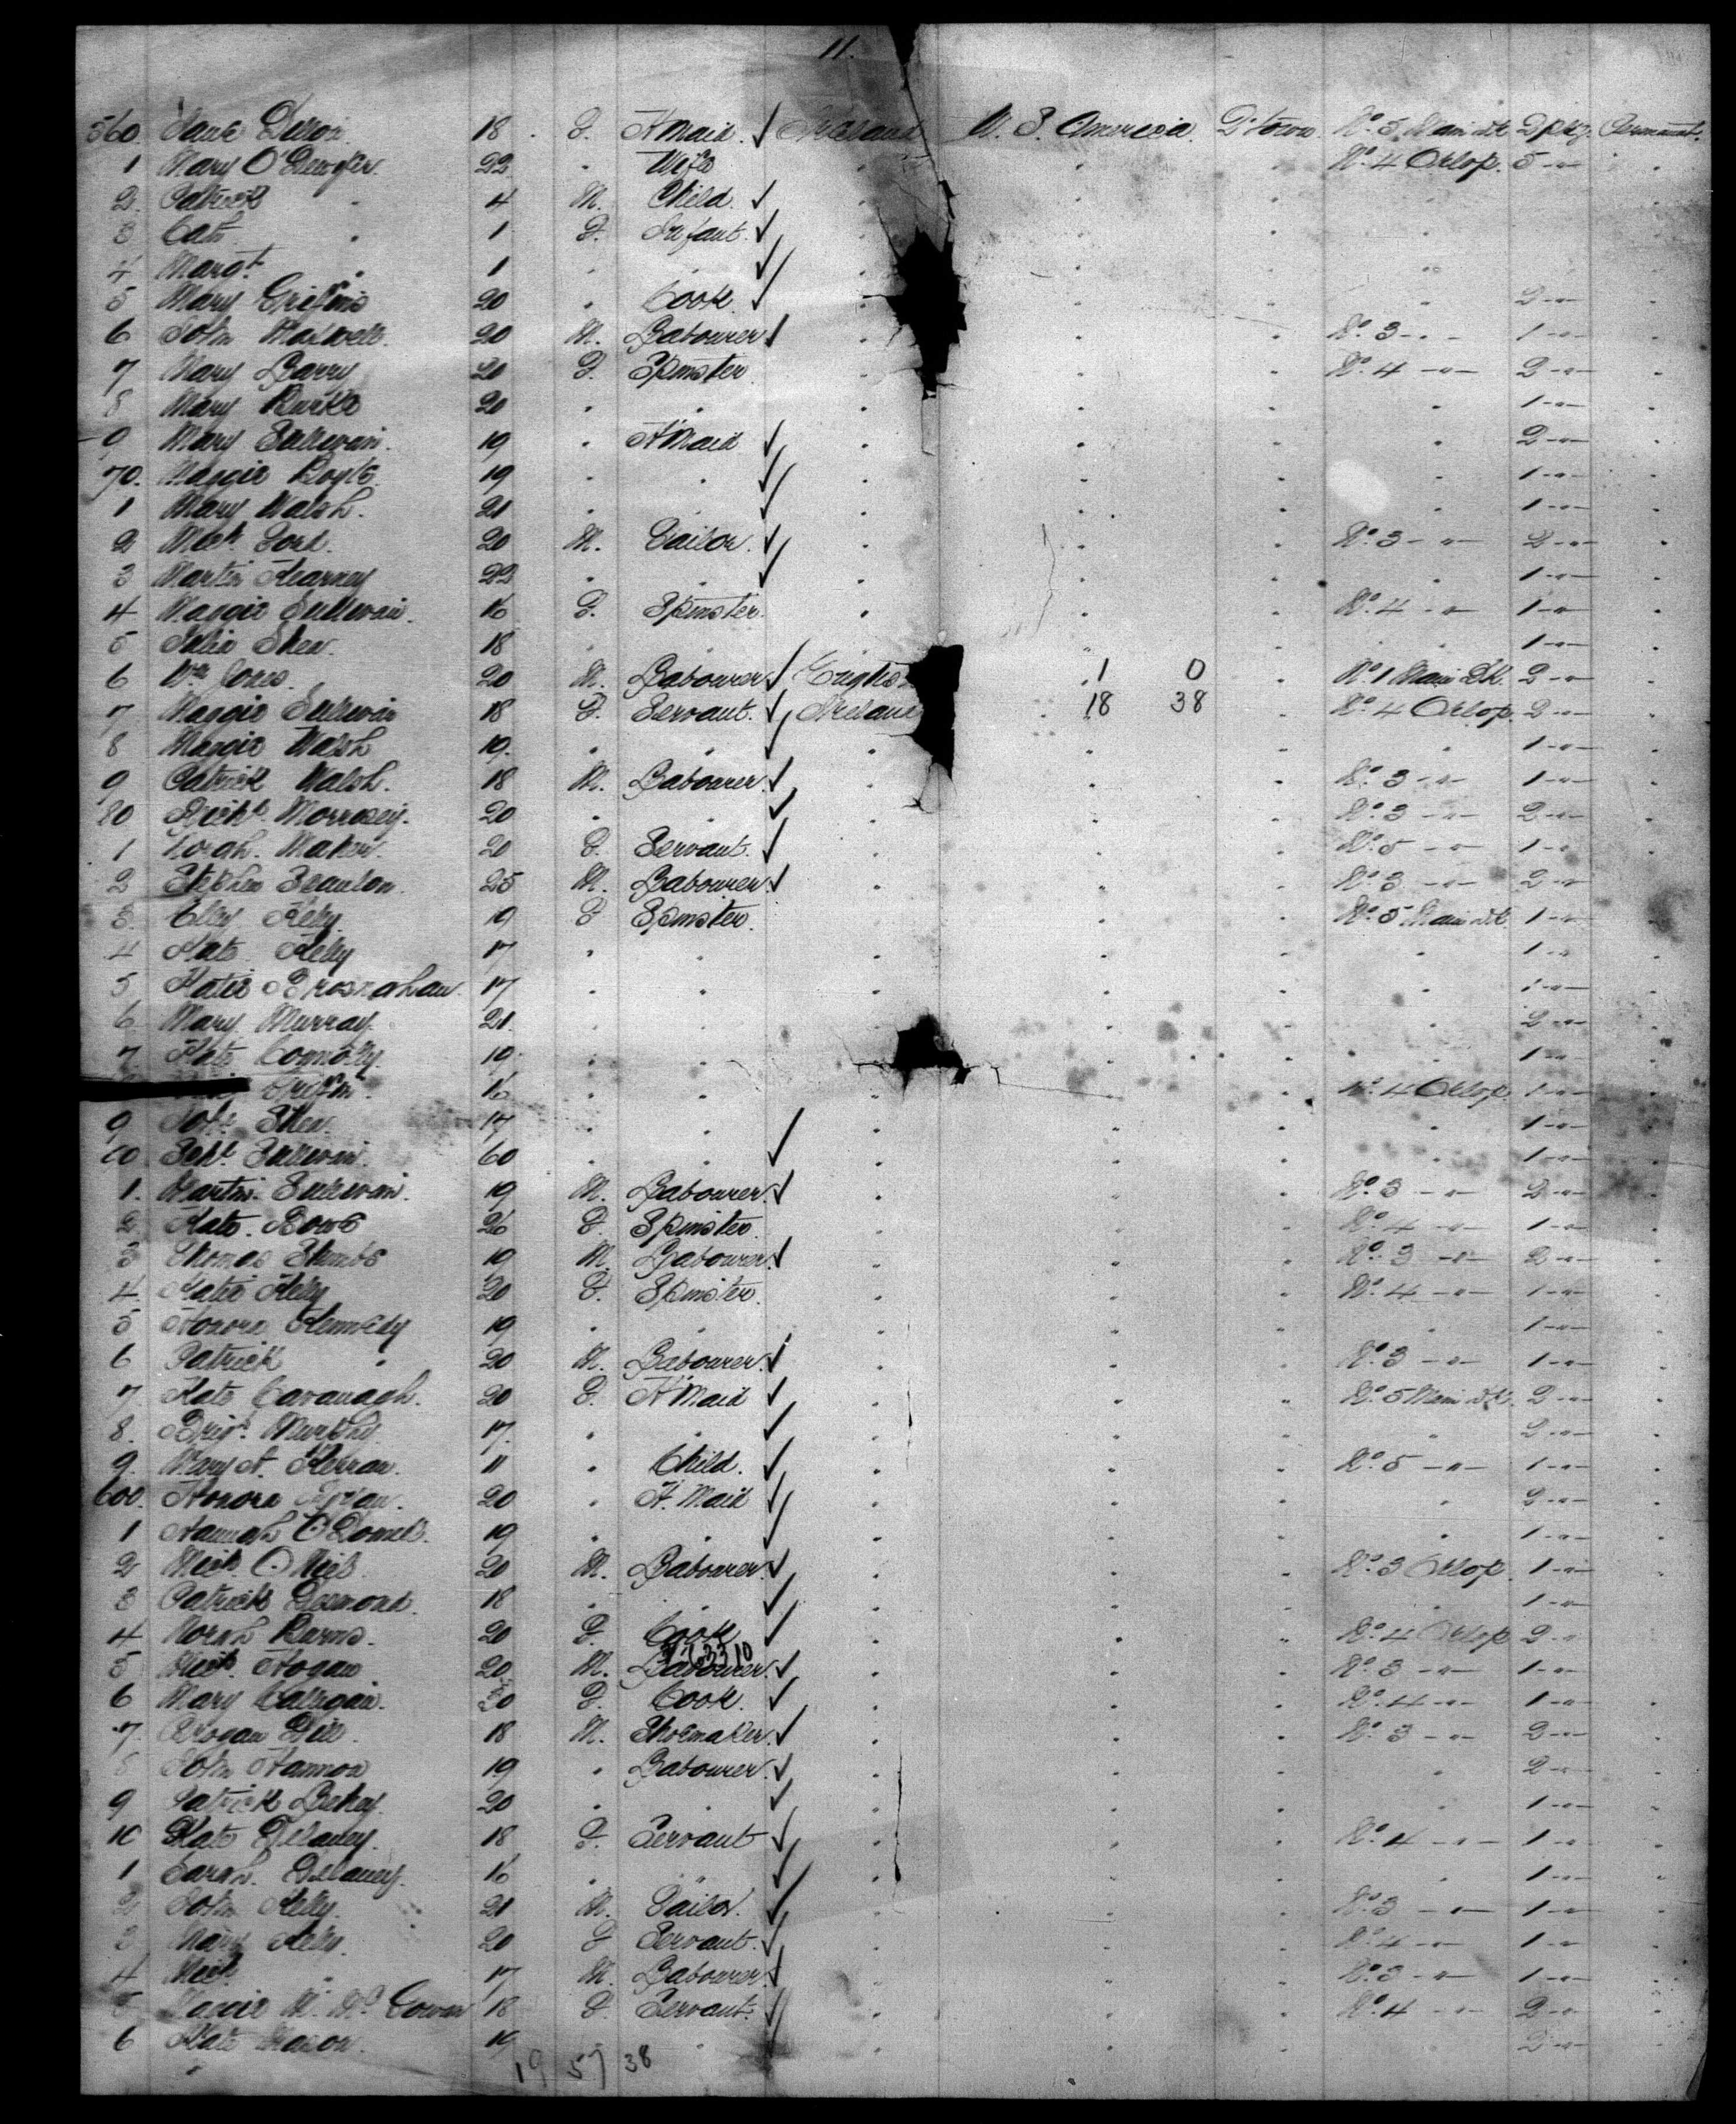 11.
560 Dillon 18 F. H Maid. ✓ Ireland U. S. America. Q'town. No. 5 Main dk 2 pkg. Permanent.
1 Mary O 22 " Wife " " " No. 4 Orlop. 5 - " - "
2. Patrick " 4 M. Child. ✓ " " " "
3 Cath " 1 F. Infant. ✓ " " " "
4 Margt. " 1 " " ✓ " " " " "
5 Mary Griffin 20 " Cook. ✓ " " " " 2 - " - "
6 John Maxwell. 20 M. Labourer ✓ " " " No. 3 - " - 1 - " - "
7 Mary Barry 20 F. Spinster " " " No. 4 - " - 2 - " - "
8 Mary Burke 20 " " " " " " 1 - " - "
9 Mary Sullivan. 19 " H Maid ✓ " " " " 2 - " - "
70. Maggie Boyle 19 " " ✓ " " " " 1 - " - "
1 Mary Walsh. 21 " " ✓ " " " " 1 - " - "
2 Mich. Ford. 20 M. Tailor. ✓ " " " No. 3 - " - 2 - " - "
3 Martin Kearney 22 " " ✓ " " " " 1 - " - "
4 Maggie Sullivan. 16 F. Spinster. " " " No. 4 - " - 1 - " - "
5 Julia Shea. 18 " " " " " " 1 - " - "
6 Wm Jones. 20 M. Labourer ✓ English 1 0 " No. 1 Main Dk. 2 - " - "
7 Maggie Sullivan 18 F. Servant. ✓ Ireland " 18 38 " No. 4 Orlop. 2 - " - "
8 Maggie Walsh 19. " " ✓ " " " " 1 - " - "
9 Patrick Walsh. 18 M. Labourer. ✓ " " " No. 3 - " - 1 - " - "
80 Richd. Morrosey. 20 " " ✓ " " " No. 3 - " - 2 - " - "
1 Norah. Maher. 20 F. Servant. ✓ " " " No. 5 - " - 1 - " - "
2 Stephen Scanlon. 25 M. Labourer ✓ " " " No. 3 - " - 2 - " - "
3. Ellen Kelly. 19 F Spinster. " " " No. 5 Main dk 1 - " - "
4 Kate Kelly 17 " " " " " " 1 - " - "
5 Katie Brosnahan. 17 " " " " " " 1 - " - "
6 Mary Murray. 21. " " " " " " 2 - " - "
7. Kate Connolly. 19. " " " " " " 1 - " - "
Griffin. 16 " " " " " No. 4 Orlop 1 - " - "
9 Shea. 17 " " " " " " 1 - " - "
90 Sullivan. 60 " " ✓ " " " " 1 - " - "
1. Martin. Sullivan. 19 M. Labourer. ✓ " " " No. 3 - " - 2 - " - "
2 Kate. 26 F. Spinster. " " " No. 4 - " - 1 - " - "
3 Thomas 19 M. Labourer. ✓ " " " No. 3 - " - 2 - " - "
4. Katie Kelly 20 F. Spinster. " " " No. 4 - " - 1 - " - "
5 Honora Kennedy 19 " " " " " " 1 - " - "
6 Patrick " 20 M. Labourer. ✓ " " " No. 3 - " - 1 - " - "
7 Kate Cavanagh. 20 F. H Maid ✓ " " " No. 5 Main dk. 2 - " - "
8. Brigt. Murphy. 17. " " ✓ " " " " 2 - " - "
9. Mary A. 11 " Child. ✓ " " " No. 5 - " - 1 - " - "
600. Honora 20 " H. Maid ✓ " " " " 2 - " - "
1 Hannah O'Donnell. 19 " " ✓ " " " " 1 - " - "
2 Mich. O'Neil. 20 M. Labourer. ✓ " " " No. 3 Orlop. 1 - " - "
3 Patrick Desmond. 18 " " ✓ " " " " 1 - " - "
4 Norah Burns. 20 F. Cook ✓ " " " No. 4 Orlop 2 - " "
5 Mich. Hogan 20 M. Labourer. ✓ " " " No. 3 - " - 1 - " - "
6 Mary Callegan. 20 F. Cook. ✓ " " " No. 4 - " - 1 - " - "
7. Brogan 18 M. Shoemaker. ✓ " " " No. 3 - " - 2 - " - "
8 John Hannon 19 " Labourer. ✓ " " " " 2 - " - "
9 Patrick 20 " " ✓ " " " " 1 - " - "
10 Kate Delaney. 18 F. Servant ✓ " " " No. 4 - " - 1 - " - "
1 Sarah. Delaney. 16 " " ✓ " " " " 1 - " - "
2 John Kelly. 21 M. Tailor. ✓ " " " No. 3 - " - 1 - " - "
3 Mary Kelly. 20 F Servant. ✓ " " " No. 4 - " - 1 - " - "
4 Mich " 17 M. Labourer ✓ " " " No. 3 - " - 1 - " - "
5 Maggie M. Mc Gowan 18 F. Servant. ✓ " " " No. 4 - " - 2 - " - "
6 Kate 19 " " ✓ " " " " 2 - " - "
19 57 38